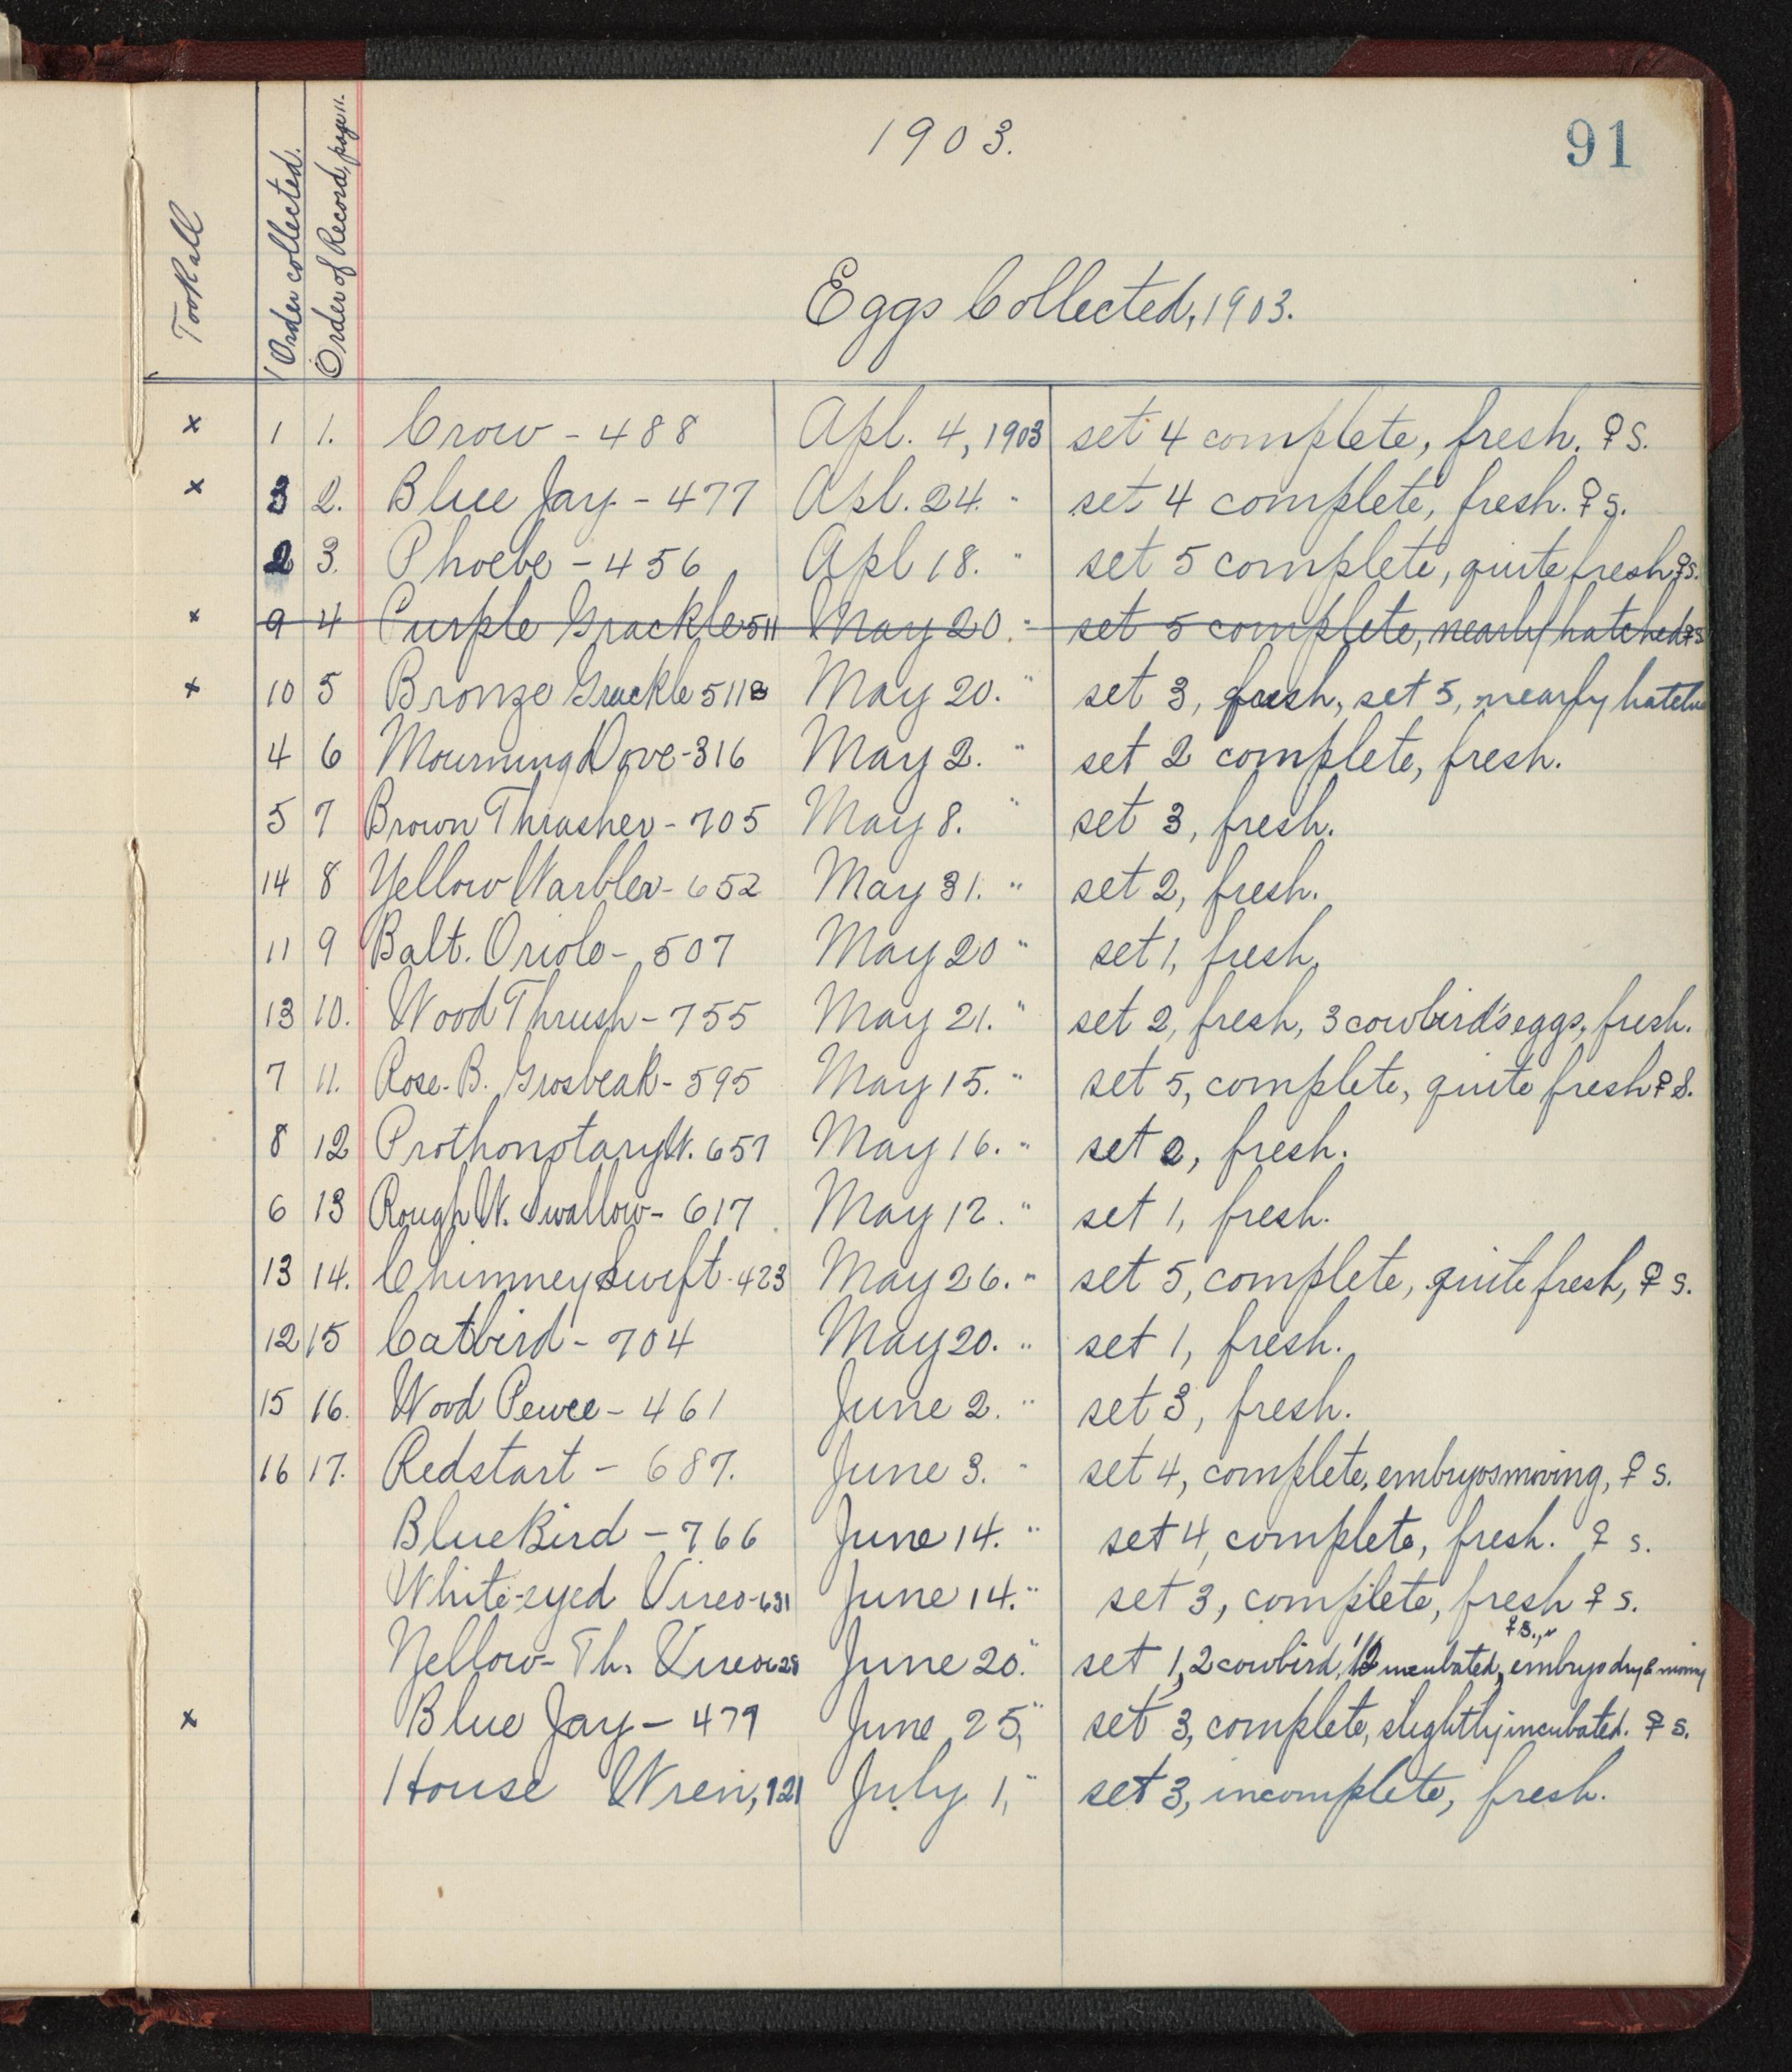 1903.
91
Took all
Order collected.
Order of Record, page 11.
Eggs Collected, 1903.
x 1 1. Crow - 488 Apl. 4, 1903 set 4 complete, fresh. ♀ s.
x 3 2. Blue Jay - 477 Apl. 24. " set 4 complete, fresh. ♀ s.
2 3. Phoebe - 456 Apl 18. " set 5 complete, quite fresh ♀ s.
x 9 4 Purple Grackle 511 May 20. " set 5 complete, nearly hatched ♀ s
x 10 5 Bronze Grackle 511B May 20. " set 3, fresh, set 5, nearly
4 6 Mourning Dove - 316 May 2. " set 2 complete, fresh.
5 7 Brown Thrasher - 705 May 8. " set 3, fresh.
14 8 Yellow Warbler - 652 May 31. " set 2, fresh.
11 9 Balt. Oriole - 507 May 20 " set 1, fresh.
13 10. Wood Thrush - 755 May 21. " set 2, fresh, 3 cowbird's eggs, fresh.
7 11. Rose-B. Grosbeak - 595 May 15. " set 5, complete, quite fresh ♀ s.
8 12 Prothonotary W. 657 May 16. " set 2, fresh.
6 13 Rough W. Swallow - 617 May 12. " set 1, fresh.
13 14. Chimney Swift - 423 May 26. " set 5, complete, quite fresh, ♀ s.
12 15 Catbird - 704 May 20. " set 1, fresh.
15 16. Wood Pewee - 461 June 2. " set 3, fresh.
16 17. Redstart - 687. June 3. " set 4, complete, embryos moving, ♀ s.
Blue Bird - 766 June 14. " set 4, complete, fresh. ♀ s.
White-eyed Vireo - 631 June 14. " set 3, complete, fresh ♀ s.
♀ s.,
Yellow-Th. Vireo 628 June 20. " set 1, 2 cowbird, incubated, embryo dry & moving
x Blue Jay - 477 June 25, " set 3, complete, slightly incubated. ♀ s.
House Wren, 721 July 1, " set 3, incomplete, fresh.